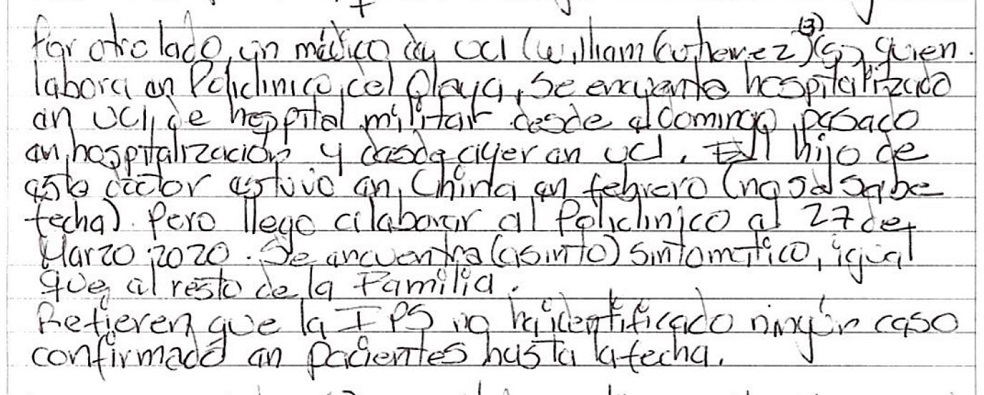 Por otro lado, un médico de UCI (William Gutierrez)(3) quien
labora en Policlinico del Olaya, se encuentra hospitalizado
en UCI, de hospital militar desde el domingo pasado
en hospitalización y desde ayer en UCI. El hijo de
este doctor estuvo en China en febrero (no se sabe
fecha). Pero llego a laborar al Policlinico el 27 de
Marzo 2020. Se encuentra (asinto) sintomático, igual
que el resto de la Familia.
Refieren que la IPS no ha identificado ningún caso
confirmado en pacientes hasta la fecha.